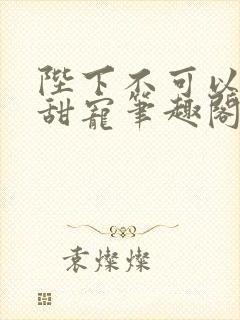 陛下不可以
甜寵筆趣閣
袁燦燦